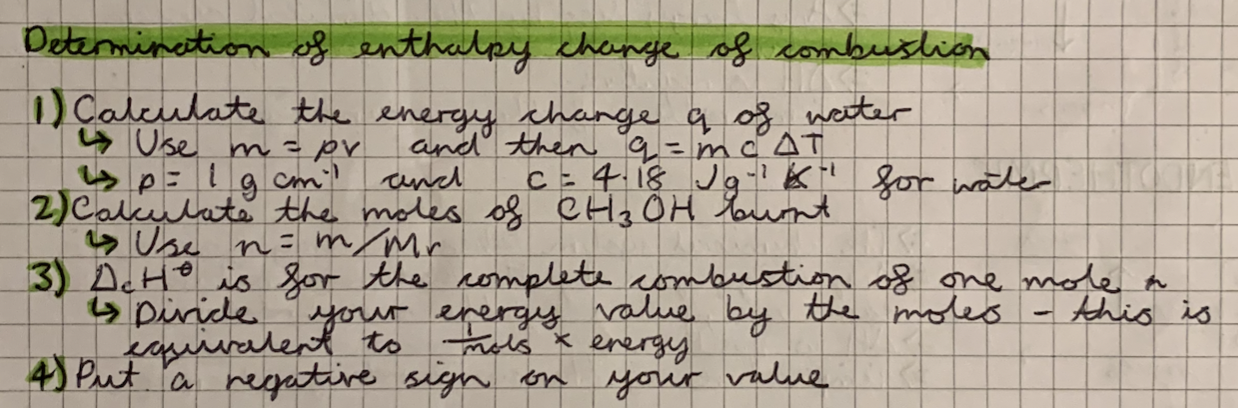 Determination of enthalpy change of combustion
1) Calculate the energy change q of water
↳ Use m = pv and then q = mcΔT
↳ p = 1 g cm⁻¹ and c = 4.18 Jg⁻¹ K⁻¹ for water
2) Calculate the moles of CH₃OH burnt
↳ Use n = m/Mr
3) ΔcH⦵ is for the complete combustion of one mole n
↳ Divide your energy value by the moles - this is
equivalent to 1/mols × energy
4) Put a negative sign on your value